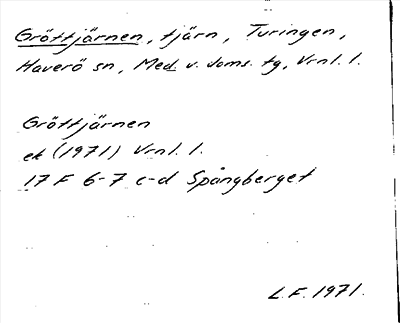 Gröttjärnen, tjärn, Turingen,
Haverö sn, Med. v. doms. tg, Vrnl. l.
Gröttjärnen
ek (1971) Vrnl. l.
17 F 6-7 c-d Spångberget
L.F. 1971.